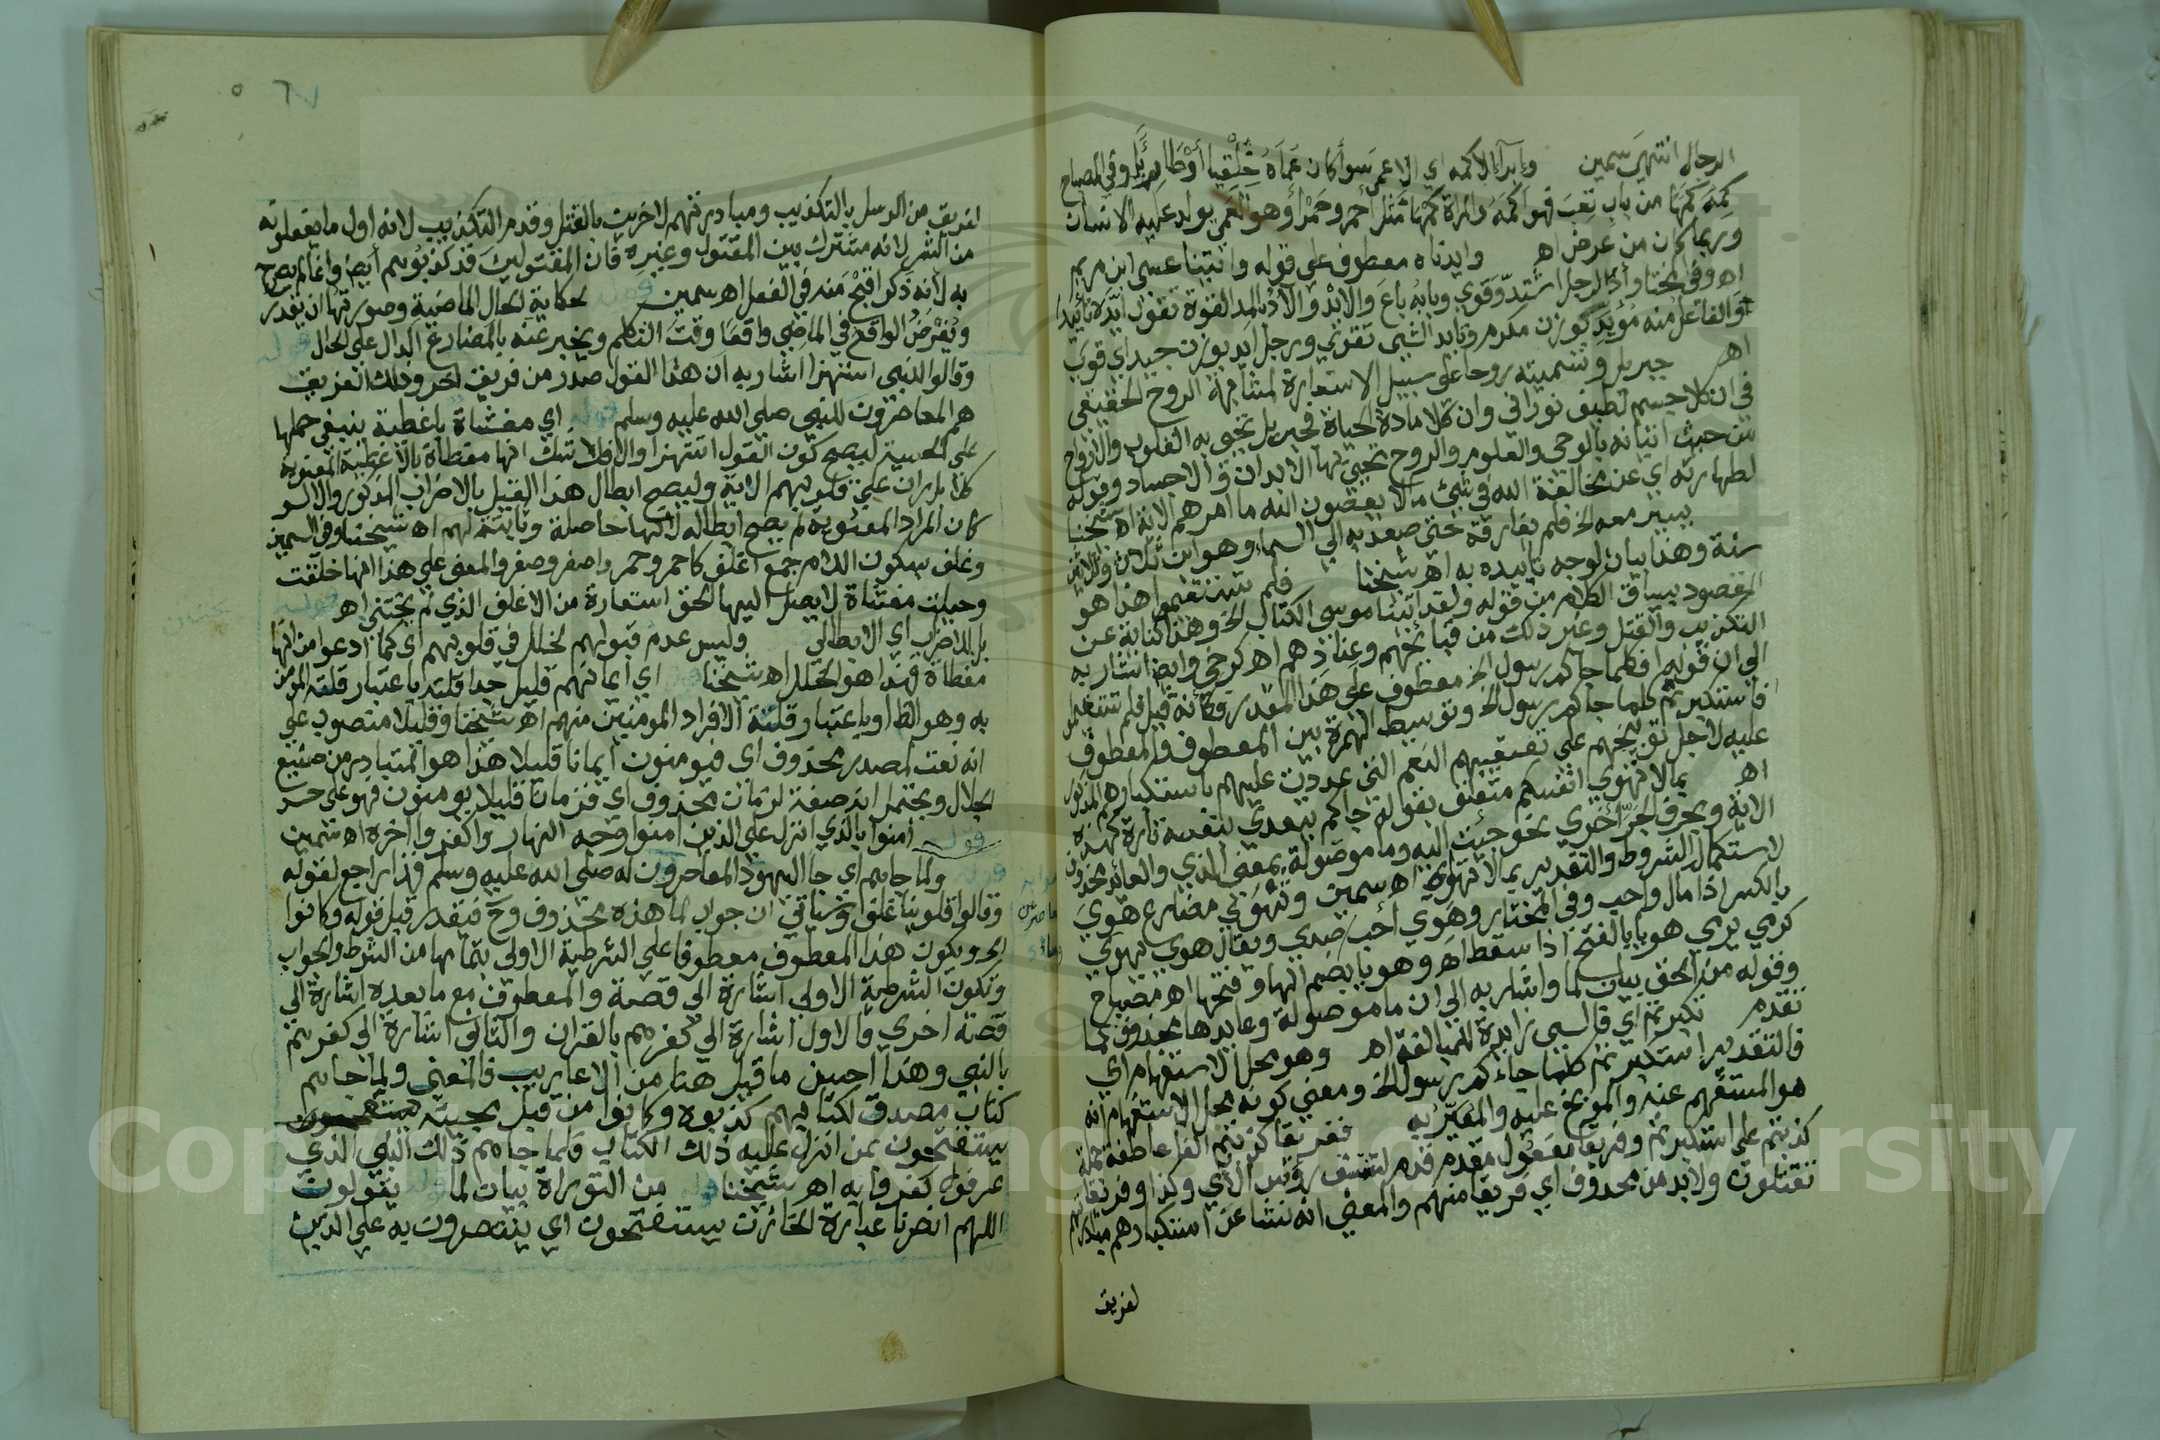 الرجال انتهى سمين وابرا الاكمه اي الاعمى سوأ كان عماه خلقيا أو طارئا وفي المصباح
كمه كمها من باب تعب فهو اكمه والمرأة كمها مثل أحمر وحمرا وهو العمى يولد عليه الانسان
وربما كان من عرض اه وايدناه معطوف على قوله واتينا عيسى ابن مريم
اه وفي المختار وأد الرجل اشتد وقوي وبابه باع والايد والآد بالمد القوة تقول ايده تاييدا
والفاعل منه مؤيد كوزن مكرم وتايد الشيى تقوي ورجل ايد بوزن جيد اي قوي
اه جبريل وتسميته روحا على سبيل الاستعارة لمشابهة الروح الحقيقي
في ان كلا جسم لطيف نوراني وان كلا مادة الحياة فجبريل تحيى به القلوب والارواح
من حيث اتيانه بالوحى والعلوم والروح تحيى بها الابدان والاجساد وقوله
لطهارته اي عن مخالفة الله في شيئ ما لا يعصون الله ما امرهم الاية اه شيخنا
يسير معه الخ فلم يفارقه حتى صعد به الي السماء وهو ابن ثلاث وثلاثين
سنة وهذا بيان لوجه تاييده به اه شيخنا فلم تستقيموا هذا هو
المقصود بسياق الكلام من قوله ولقد اتينا موسى الكتاب الخ وهذا كناية عن
التكذيب والقتل وغير ذلك من قبائحهم وعنادهم اه كرخى وايضا اشار به
الي ان قوله افكلما جاكم رسول الخ معطوف على هذا المقدر وكانه قيل فلم تستقيموا
فاستكبرتم كلما جاكم رسول الخ وتوسيط الهمزة بين المعطوف والمعطوف
عليه لاجل توبيخهم على تعقيبهم النعم التى عددت عليهم باستكبارهم المذكور
اه بما لا تهوي انفسكم متعلق بقوله جاكم يتعدي بنفسه تارة كهذه
الاية وبحرف الجر أخري نحو جيئت اليه وما موصولة بمعنى الذي والعائد محذوف
لاستكمال الشروط والتقدير بما لا تهواه اه سمين وتهوي مضارع هوي
بالكسر اذا مال واحب وفي المختار وهوي أحب صدي ويقال هوي يهوي
كرمي يرمي هويا بالفتح اذا سقط اه وهو يا بضم الها وفتحها اه مصباح
وقوله من الحق بيان لما واشار به الي ان ما موصولة وعايدها محذوف كما
تقدم تكبرتم اي فالسين زايدة للمبالغة اه وهو محل الاستفهام اي
فالتقدير استكبرتم كلما جاءكم رسول الخ ومعنى كونه محل الاستفهام انه
هو المستفهم عنه والموبخ عليه والمعير به ففريقا كذبتم الفا عاطفة جملة
كذبتم على استكبرتم وفريقا مفعول مقدم قدم لتتفق رؤس الآي وكذا وفريقا
تقتلون ولابد من محذوف اي فريقا منهم والمعنى انه نشا عن استكبارهم مبادرتهم
لفريق
لفريق من الرسل بالتكذيب ومبادرتهم لاخرين بالقتل وقدم التكذيب لانه اول ما يفعلونه
من الشر لانه مشترك بين المقتول وغيره فان المقتولين قد كذبوهم أيضا وانما لم يصرح
به لأنه ذكر اقبح منه في الفعل اه سمين لحكاية الحال الماضية وصورتها ان يقدر
ويفرض الواقع في الماضى واقعا وقت التكلم ويخبر عنه بالمضارع الدال على الحال
وقالوا للنبى استهزا اشار به ان هذا القول صدر من فريق اخر وذلك الفريق
هم المعاصرون للنبي صلى الله عليه وسلم اي مغشاة باغطية ينبغي حملها
على الحسية ليصح كون القول استهزا والا فلا شك انها مغطاة بالأغطية المعنوية
كلا بل ران على قلوبهم الاية وليصح ابطال هذا القيل بالاضراب المذكور والا لو
كان المراد المعنوية لم يصح ابطاله لانها حاصلة وثابتة لهم اه شيخنا وفي السمين
وغلف بسكون اللام جمع اغلف كاحمر وحمر واصفر وصفر والمعنى على هذا انها خلقت
وجبلت مغشاة لا يصل اليها الحق استعارة من الاغلف الذي لم يختتن اه
بل للاضراب اي الابطالي وليس عدم قبولهم لخلل في قلوبهم اي كما ادعوا من انها
مغطاة فهذا هو الخلل اه شيخنا اي ايمانهم قليل جدا قلته باعتبار قلة المومن
به وهو الظ او باعتبار قلة الافراد المومنين منهم اه شيخنا وقليلا منصوب على
انه نعت لمصدر محذوف اي فيومنون ايمانا قليلا هذا هو المتبادر من صنيع
الجلال ويحتمل انه صفة لزمان محذوف اي فزمانا قليلا يومنون فهو على حد
قوله آمنوا بالذي انزل على الذين آمنوا وجه النهار واكفروا اخره اه سمين
ولما جاهم اي جا اليهود المعاصرون له صلى الله عليه وسلم فهذا راجع لقوله
وقالوا قلوبنا غلف وسياتي ان جواب لما هذه محذوف وح فيقدر قبل قوله وكانوا
الخ ويكون هذا المعطوف معطوفا على الشرطية الاولى بتمامها من الشرط والجواب
وتكون الشرطية الاولى اشارة الي قصة والمعطوف مع ما بعده اشارة الي
قصة اخري والاول اشارة الي كفرهم بالقران والثاني اشارة الي كفرهم
بالنبي وهذا احسن ما قيل هنا من الاعاريب فالمعنى ولما جاهم
كتاب مصدق لكتابهم كذبوه وكانوا من قبل مجيئه
يستفتحون بمن انزل عليه ذلك الكتاب فلما جاهم ذلك النبي الذي
عرفوه كفروا به اه شيخنا من التوراة بيان لما يقولون
اللهم انصرنا عبارة الخازن يستفتحون اي يستنصرون به على الذين